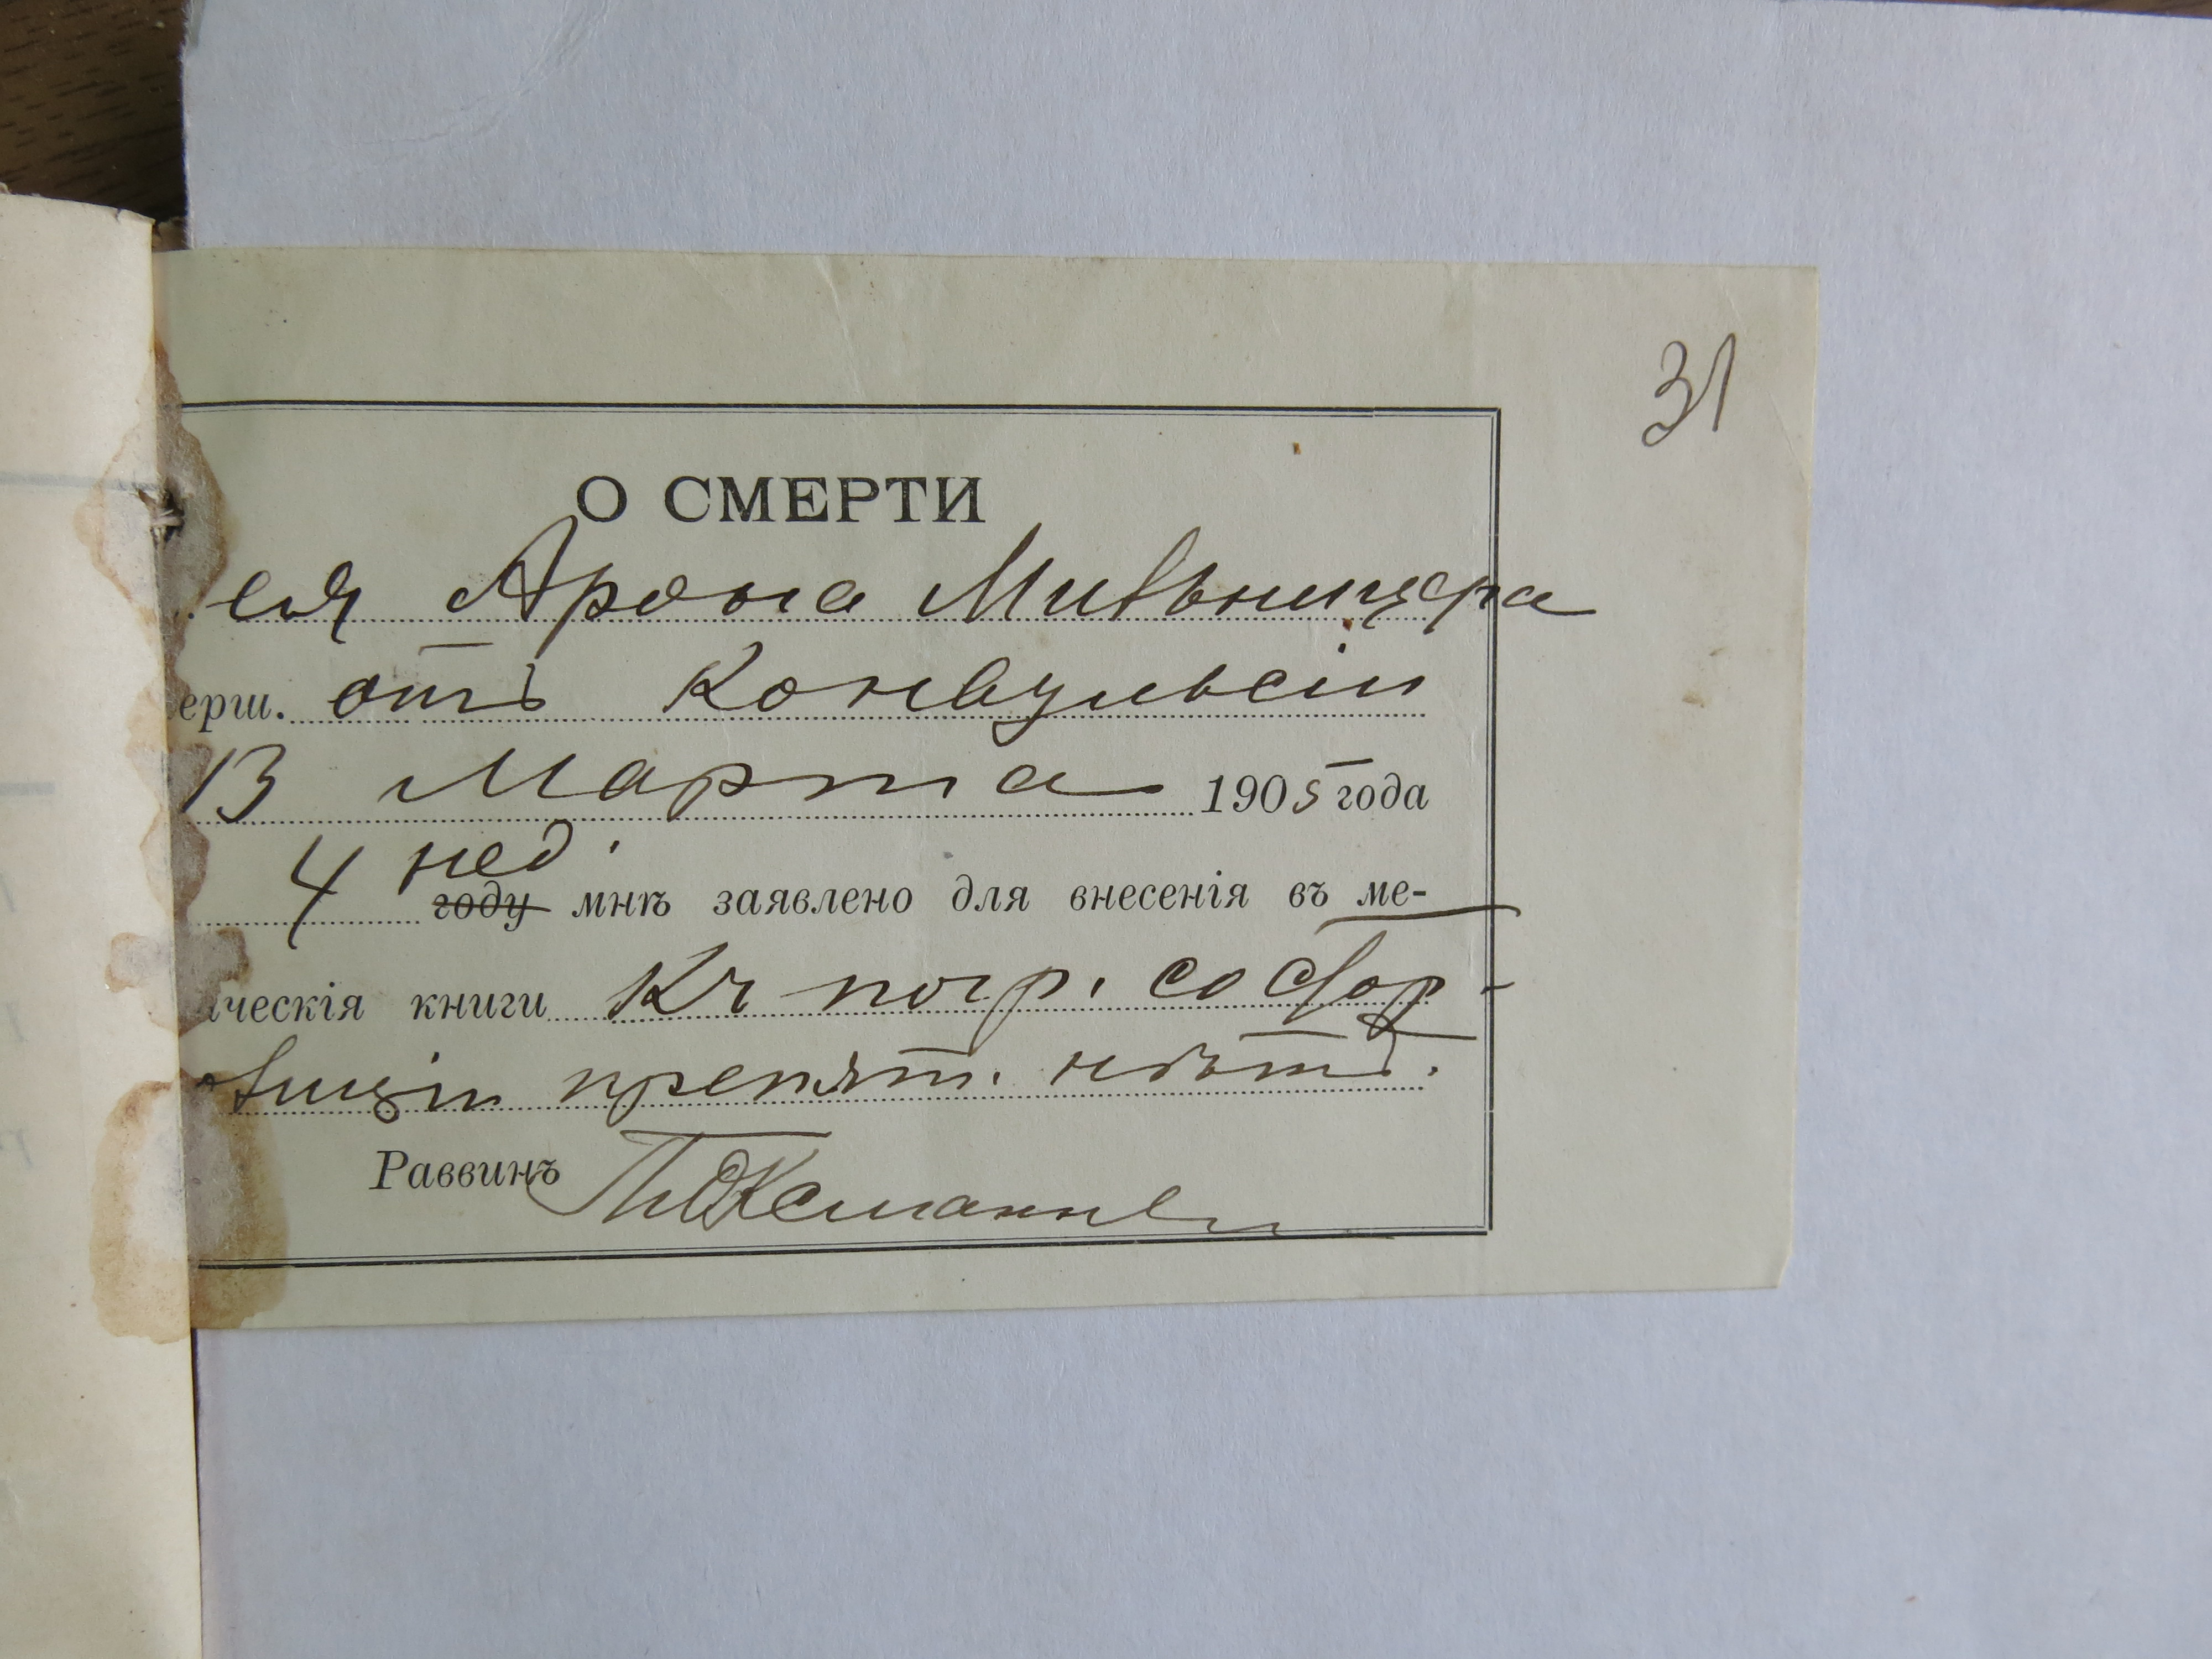 31
О СМЕРТИ
ея Арона Мильницера
ерш. отъ Конвульсіи
13 Марта 1905 года
4 нед.
году мнѣ заявлено для внесенія въ ме-
ическія книги Къ погр. со стор-
полиціи препят. нѣтъ.
Раввинъ